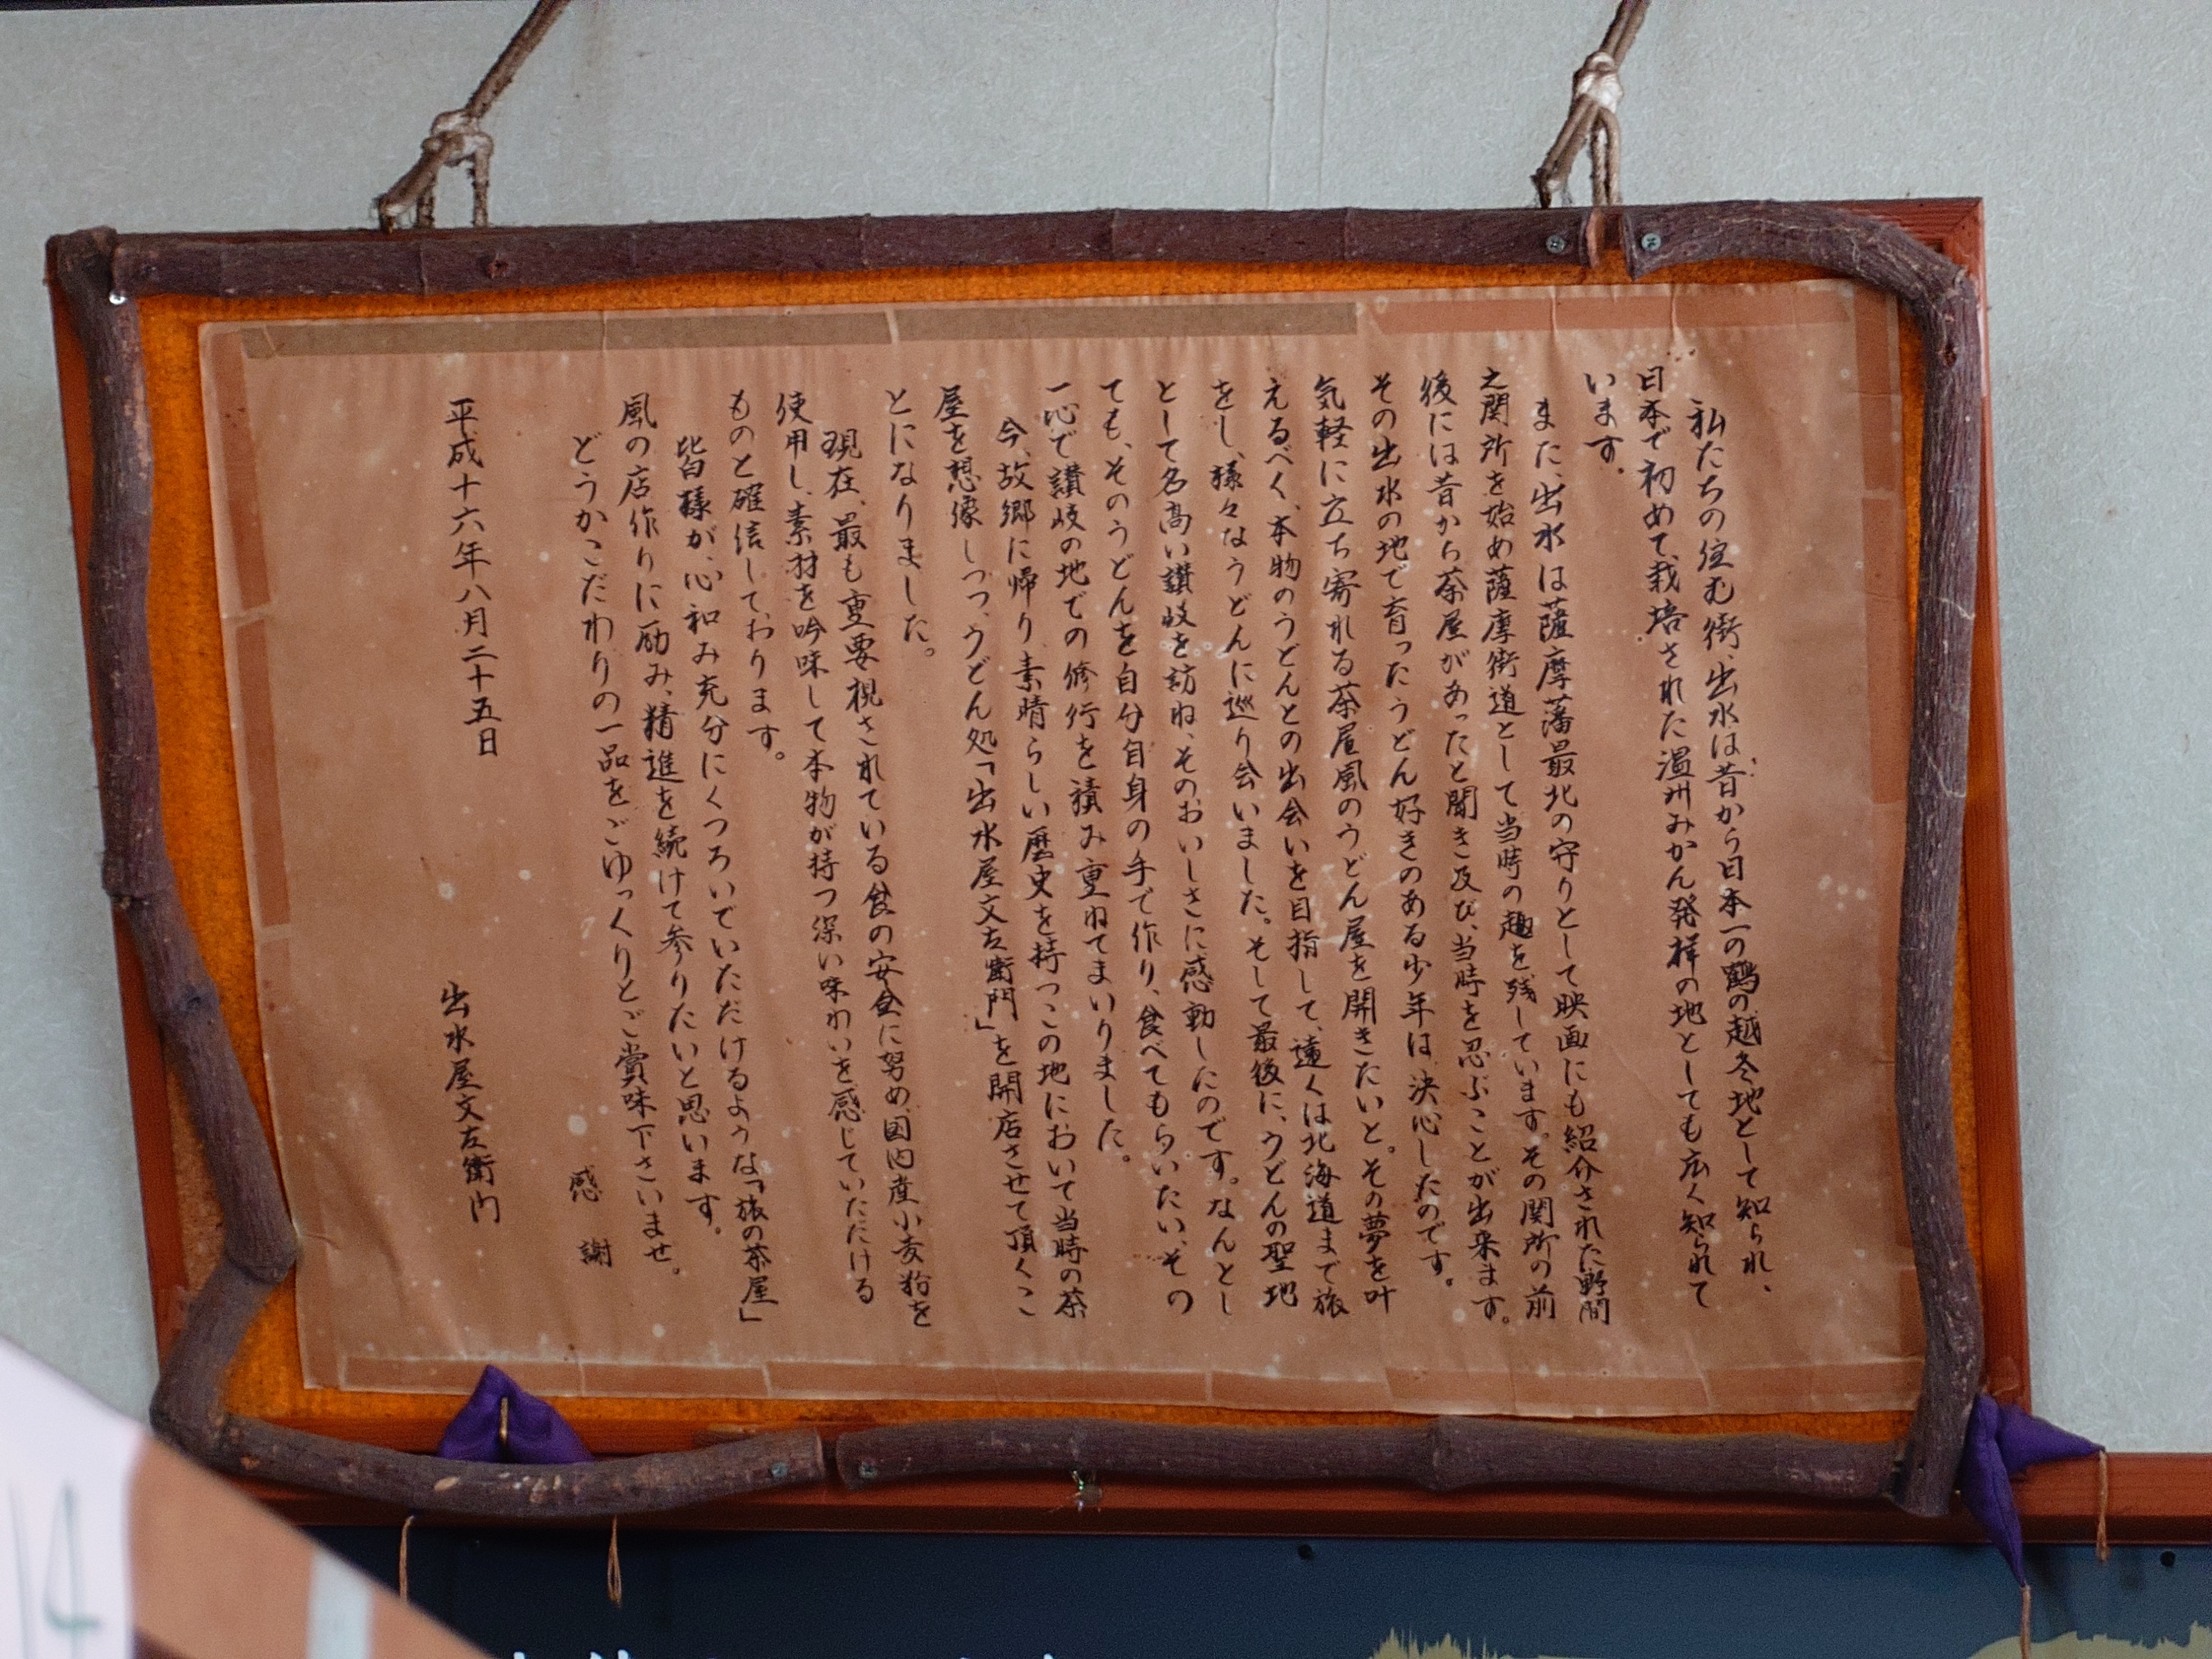 私たちの住む街、出水は昔から日本一の鶴の越冬地として知られ、
日本で初めて、栽培された温州みかん発祥の地としても広く知られて
います。
また、出水は薩摩藩最北の守りとして映画にも紹介された野間
之関所を始め薩摩街道として当時の趣を残しています。その関所の前
後には昔から茶屋があったと聞き及び、当時を忍ぶことが出来ます。
その出水の地で育ったうどん好きのある少年は、決心したのです。
気軽に立ち寄れる茶屋風のうどん屋を開きたいと。その夢を叶
えるべく、本物のうどんとの出会いを目指して、遠くは北海道まで旅
をし、様々なうどんに巡り会いました。そして最後に、うどんの聖地
として名高い讃岐を訪ね、そのおいしさに感動したのです。なんとし
ても、そのうどんを自分自身の手で作り、食べてもらいたい、その
一心で讃岐の地での修行を積み重ねてまいりました。
今、故郷に帰り素晴らしい歴史を持つこの地において当時の茶
屋を想像しつつ、うどん処「出水屋文左衛門」を開店させて頂くこ
とになりました。
現在、最も重要視されている食の安全に努め、国内産小麦粉を
使用し、素材を吟味して本物が持つ深い味わいを感じていただける
ものと確信して、おります。
皆様が、心和み充分にくつろいでいただけるような「旅の茶屋」
風の店作りに励み、精進を続けて参りたいと思います。
どうかこだわりの一品をごゆっくりとご賞味下さいませ。
感 謝
平成十六年八月二十五日
出水屋文左衛門
14